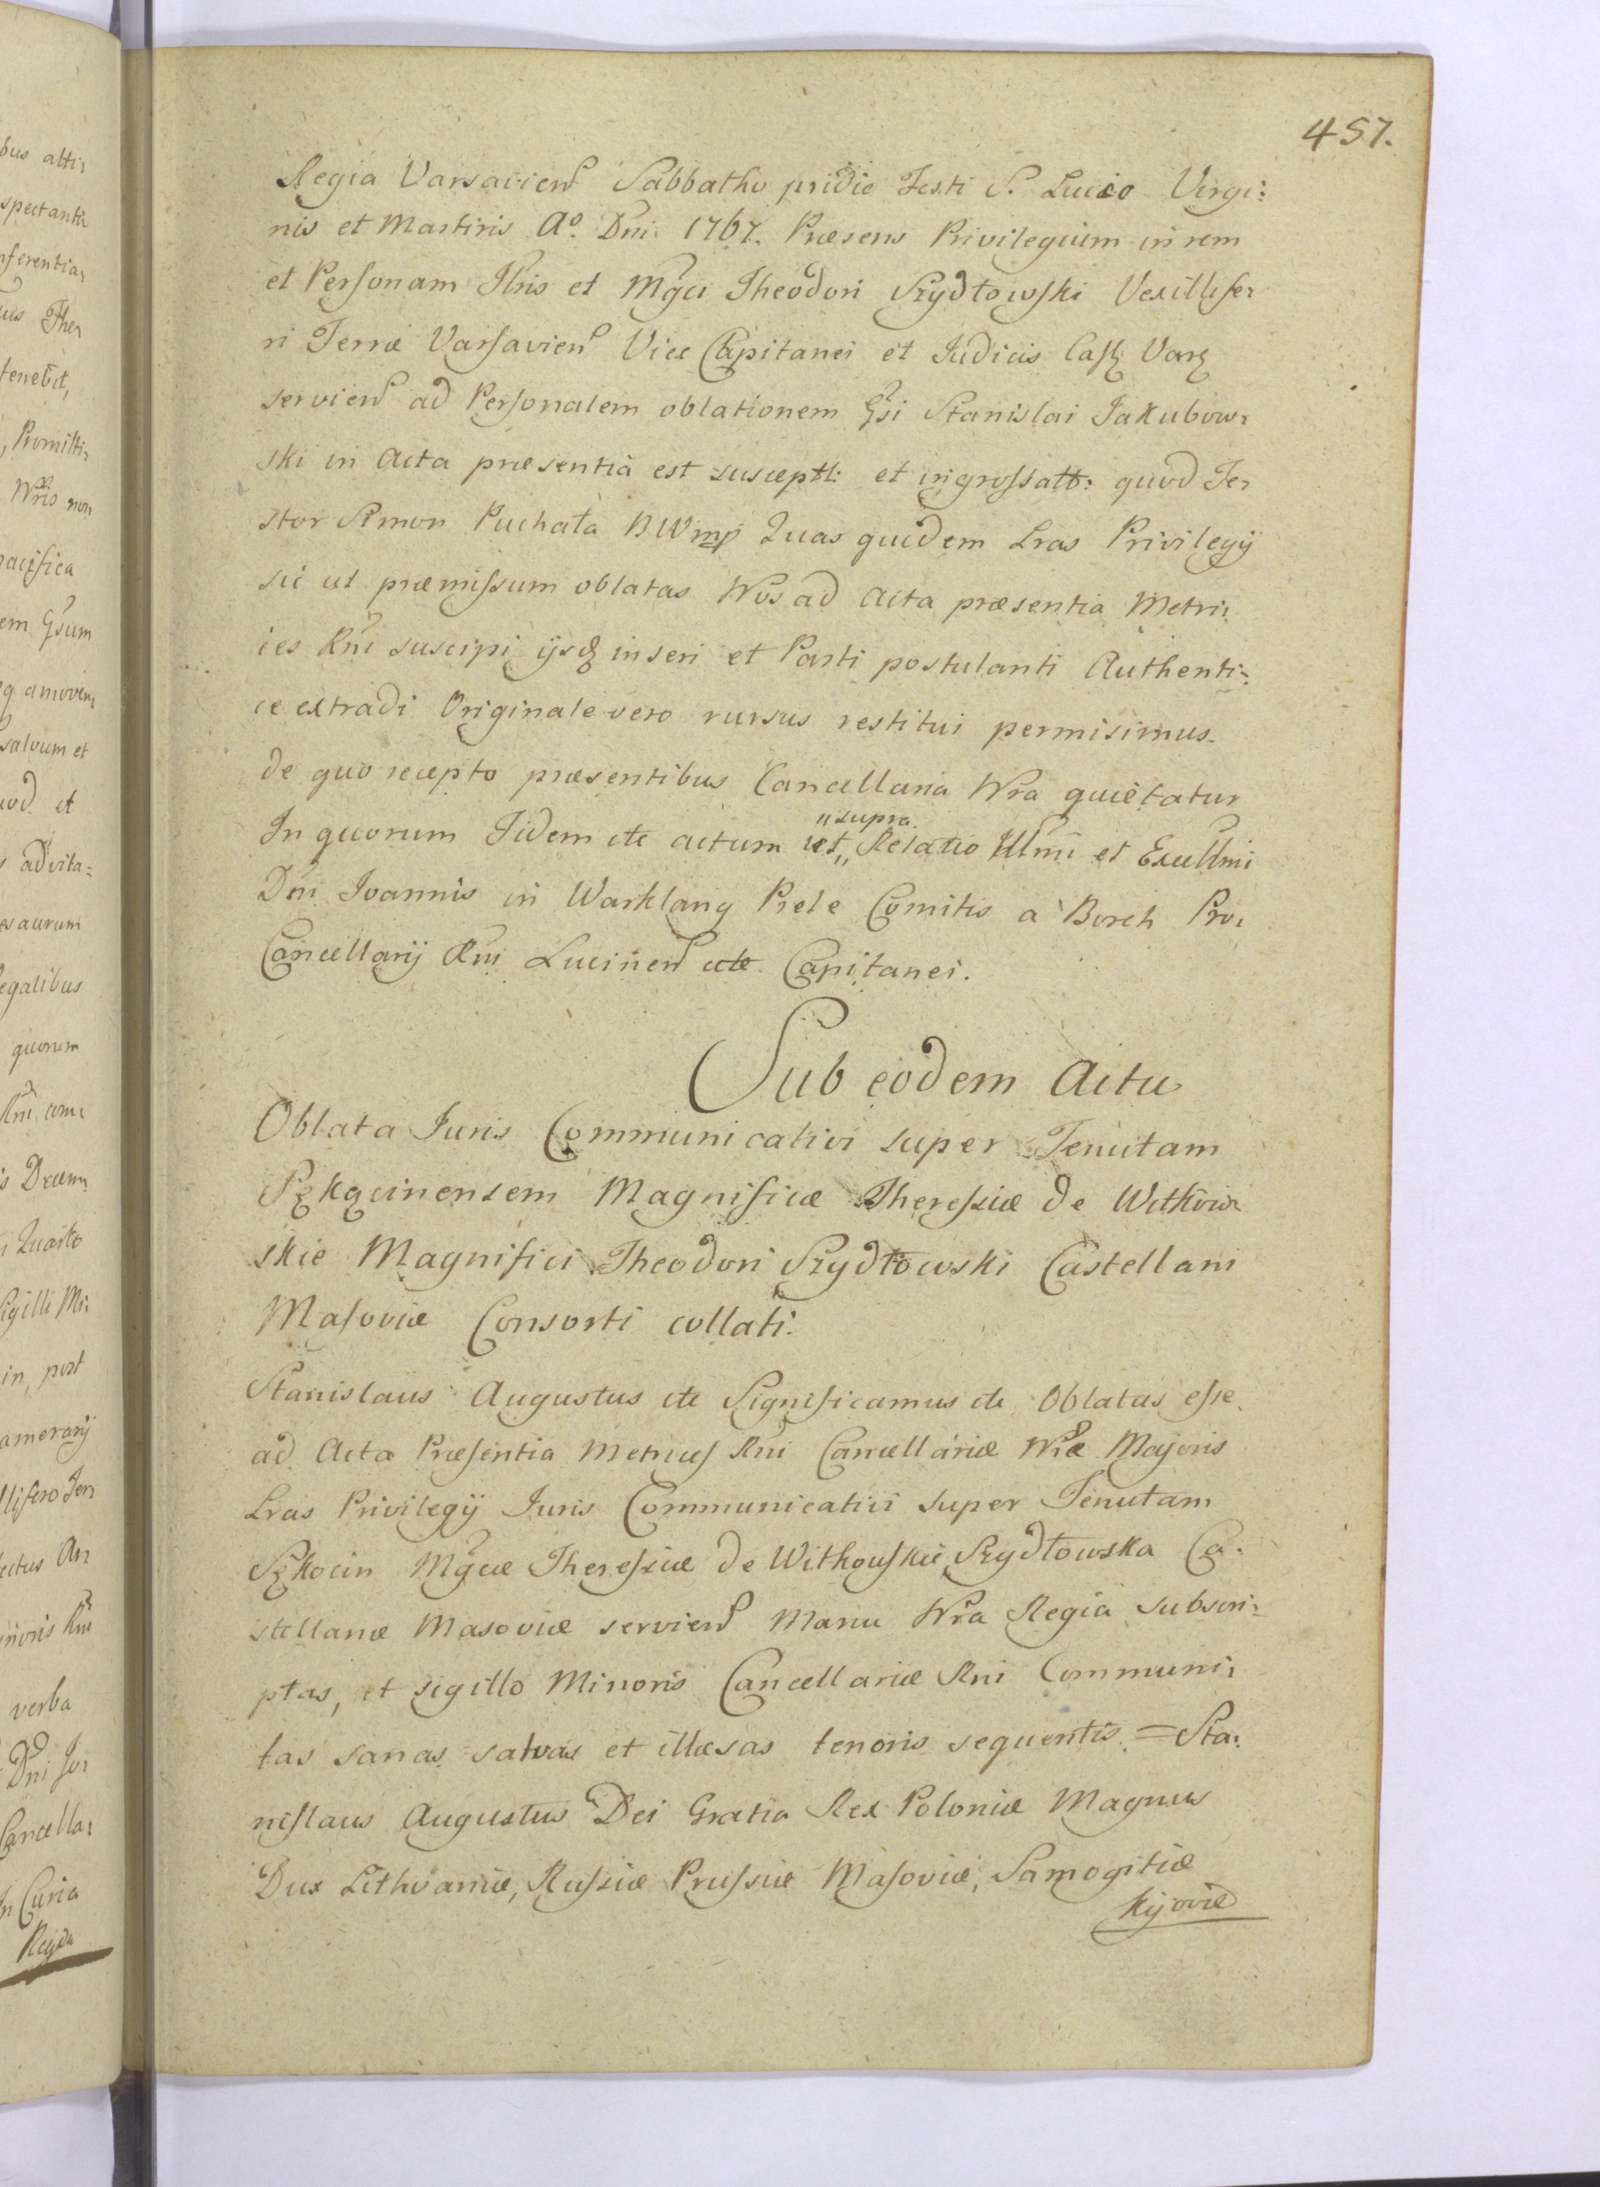 457.
Regia Varsavien Sabbatho pridie Festi S. Lucio Virgi:
nis et Martiris Ao. Dni 1767. Præsens Privilegium in rem
et Personam Illris et Mgci Theodori Szydłowski Vexillife:
ri Terræ Varsavien Vice Capitanei et Judicis Cast Vars
servien ad Personalem oblationem Gsi Stanislai Jakubow:
ski in Acta præsentia est suscept: et ingrossatt: quod Te:
stor Simon Puchała BWmp Quas quidem Lras Privilegij
sic ut præmissum oblatas Nos ad Acta præsentia Metri:
ces Rni suscipi ijsq inseri et Parti postulanti Authenti:
ce extradi Originale vero rursus restitui permisimus.
de quo recepto præsentibus Cancellaria Nra quietatur
In quorum Fidem etc actum ut „supra„ Relatio Illmi et Excellmi
Dni Joannis in Warklany Prele Comitis a Borch Pro:
Cancellarij Rni Lucinen etc Capitanei.
Sub eodem Actu
Oblata Juris Communicativi super Tenutam
Pękącinensem Magnificæ Theresiæ de Witkow:
skie Magnifici Theodori Szydłowski Castellani
Masoviæ Consorti collati.
Stanislaus Augustus etc Significamus etc Oblatas esse
ad Acta Præsentia Metrices Rni Cancellariæ Nræ Majoris
Lras Privilegij Juris Communicativi super Tenutam
Mgcæ Theresiæ de Witkowskie Szydłowska Ca:
stellanæ Masoviæ servien Manu Nra Regia subscri:
ptas, et sigillo Minoris Cancellariæ Rni Communi:
tas sanas salvas et illæsas tenoris sequentis = Sta:
nislaus Augustus Dei Gratia Rex Poloniæ Magnus
Dux Lithvaniæ, Russiæ Prussiæ Masoviæ, Samogitiæ
Kijoviæ